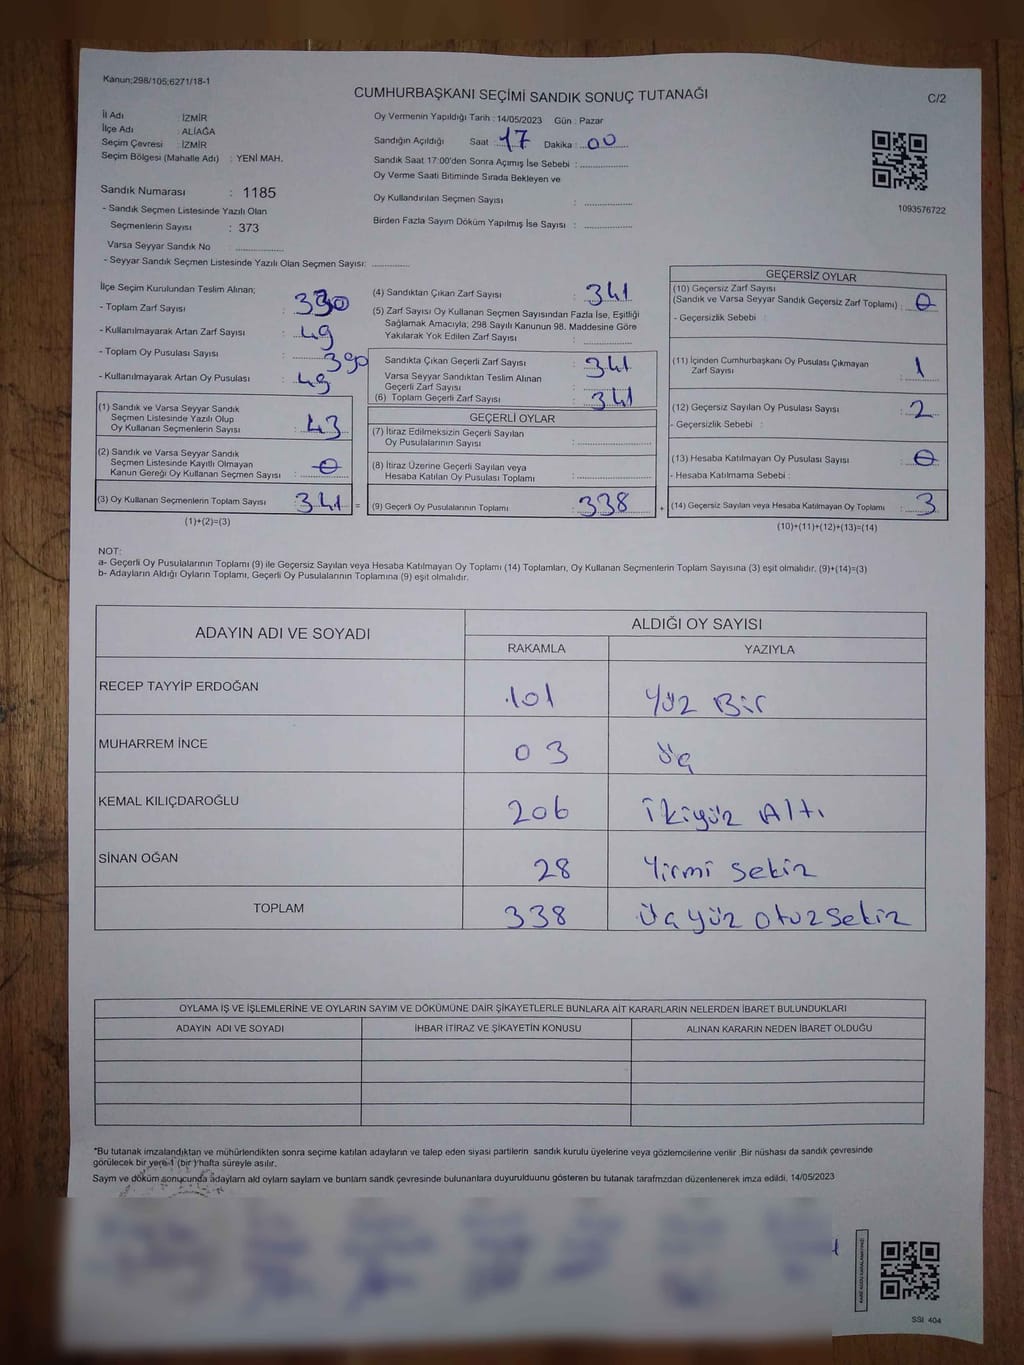 Kanun;298/105;6271/18-1
CUMHURBAŞKANI SEÇİMİ SANDIK SONUÇ TUTANAĞI
C/2
İl Adı : İZMİR
İlçe Adı : ALİAĞA
Seçim Çevresi : İZMİR
Seçim Bölgesi (Mahalle Adı) : YENİ MAH.
Sandık Numarası : 1185
- Sandık Seçmen Listesinde Yazılı Olan
Seçmenlerin Sayısı : 373
Varsa Seyyar Sandık No
- Seyyar Sandık Seçmen Listesinde Yazılı Olan Seçmen Sayısı:
Oy Vermenin Yapıldığı Tarih : 14/05/2023 Gün : Pazar
Sandığın Açıldığı Saat : 17 Dakika : 00
Sandık Saat 17:00'den Sonra Açımış İse Sebebi :
Oy Verme Saati Bitiminde Sırada Bekleyen ve
Oy Kullandırılan Seçmen Sayısı :
Birden Fazla Sayım Döküm Yapılmış İse Sayısı :
1093576722
İlçe Seçim Kurulundan Teslim Alınan;
- Toplam Zarf Sayısı :
- Kullanılmayarak Artan Zarf Sayısı : 49
- Toplam Oy Pusulası Sayısı : 390
- Kullanılmayarak Artan Oy Pusulası : 49
(1) Sandık ve Varsa Seyyar Sandık
Seçmen Listesinde Yazılı Olup
Oy Kullanan Seçmenlerin Sayısı : 43
(2) Sandık ve Varsa Seyyar Sandık
Seçmen Listesinde Kayıtlı Olmayan
Kanun Gereği Oy Kullanan Seçmen Sayısı : 0
(3) Oy Kullanan Seçmenlerin Toplam Sayısı : 341 =
(1)+(2)=(3)
(4) Sandıktan Çıkan Zarf Sayısı : 341
(5) Zarf Sayısı Oy Kullanan Seçmen Sayısından Fazla İse, Eşitliği
Sağlamak Amacıyla; 298 Sayılı Kanunun 98. Maddesine Göre
Yakılarak Yok Edilen Zarf Sayısı :
Sandıkta Çıkan Geçerli Zarf Sayısı : 341
Varsa Seyyar Sandıktan Teslim Alınan
Geçerli Zarf Sayısı :
(6) Toplam Geçerli Zarf Sayısı : 341
GEÇERLİ OYLAR
(7) İtiraz Edilmeksizin Geçerli Sayılan
Oy Pusulalarının Sayısı :
(8) İtiraz Üzerine Geçerli Sayılan veya
Hesaba Katılan Oy Pusulası Toplamı :
(9) Geçerli Oy Pusulalarının Toplamı : 338 +
GEÇERSİZ OYLAR
(10) Geçersiz Zarf Sayısı
(Sandık ve Varsa Seyyar Sandık Geçersiz Zarf Toplamı) : 0
- Geçersizlik Sebebi :
(11) İçinden Cumhurbaşkanı Oy Pusulası Çıkmayan
Zarf Sayısı : 1
(12) Geçersiz Sayılan Oy Pusulası Sayısı : 2
- Geçersizlik Sebebi :
(13) Hesaba Katılmayan Oy Pusulası Sayısı : 0
- Hesaba Katılmama Sebebi :
(14) Geçersiz Sayılan veya Hesaba Katılmayan Oy Toplamı : 3
(10)+(11)+(12)+(13)=(14)
NOT:
a- Geçerli Oy Pusulalarının Toplamı (9) ile Geçersiz Sayılan veya Hesaba Katılmayan Oy Toplamı (14) Toplamları, Oy Kullanan Seçmenlerin Toplam Sayısına (3) eşit olmalıdır. (9)+(14)=(3)
b- Adayların Aldığı Oyların Toplamı, Geçerli Oy Pusulalarının Toplamına (9) eşit olmalıdır.
ADAYIN ADI VE SOYADI
ALDIĞI OY SAYISI
RAKAMLA YAZIYLA
RECEP TAYYİP ERDOĞAN 101 Yüz Bir
MUHARREM İNCE 03 Üç
KEMAL KILIÇDAROĞLU 206 İkiyüz Altı
SİNAN OĞAN 28 Yirmi Sekiz
TOPLAM 338 Üçyüz otuz sekiz
OYLAMA İŞ VE İŞLEMLERİNE VE OYLARIN SAYIM VE DÖKÜMÜNE DAİR ŞİKAYETLERLE BUNLARA AİT KARARLARIN NELERDEN İBARET BULUNDUKLARI
ADAYIN ADI VE SOYADI İHBAR İTİRAZ VE ŞİKAYETİN KONUSU ALINAN KARARIN NEDEN İBARET OLDUĞU
*Bu tutanak imzalandıktan ve mühürlendikten sonra seçime katılan adayların ve talep eden siyasi partilerin sandık kurulu üyelerine veya gözlemcilerine verilir .Bir nüshası da sandık çevresinde
görülecek bir yere 1 (bir ) hafta süreyle asılır.
Sayım ve döküm sonucunda adayların ald oyların sayları ve bunların sandk çevresinde bulunanlara duyurulduunu gösteren bu tutanak tarafmzdan düzenlenerek imza edildi. 14/05/2023
SSI 404